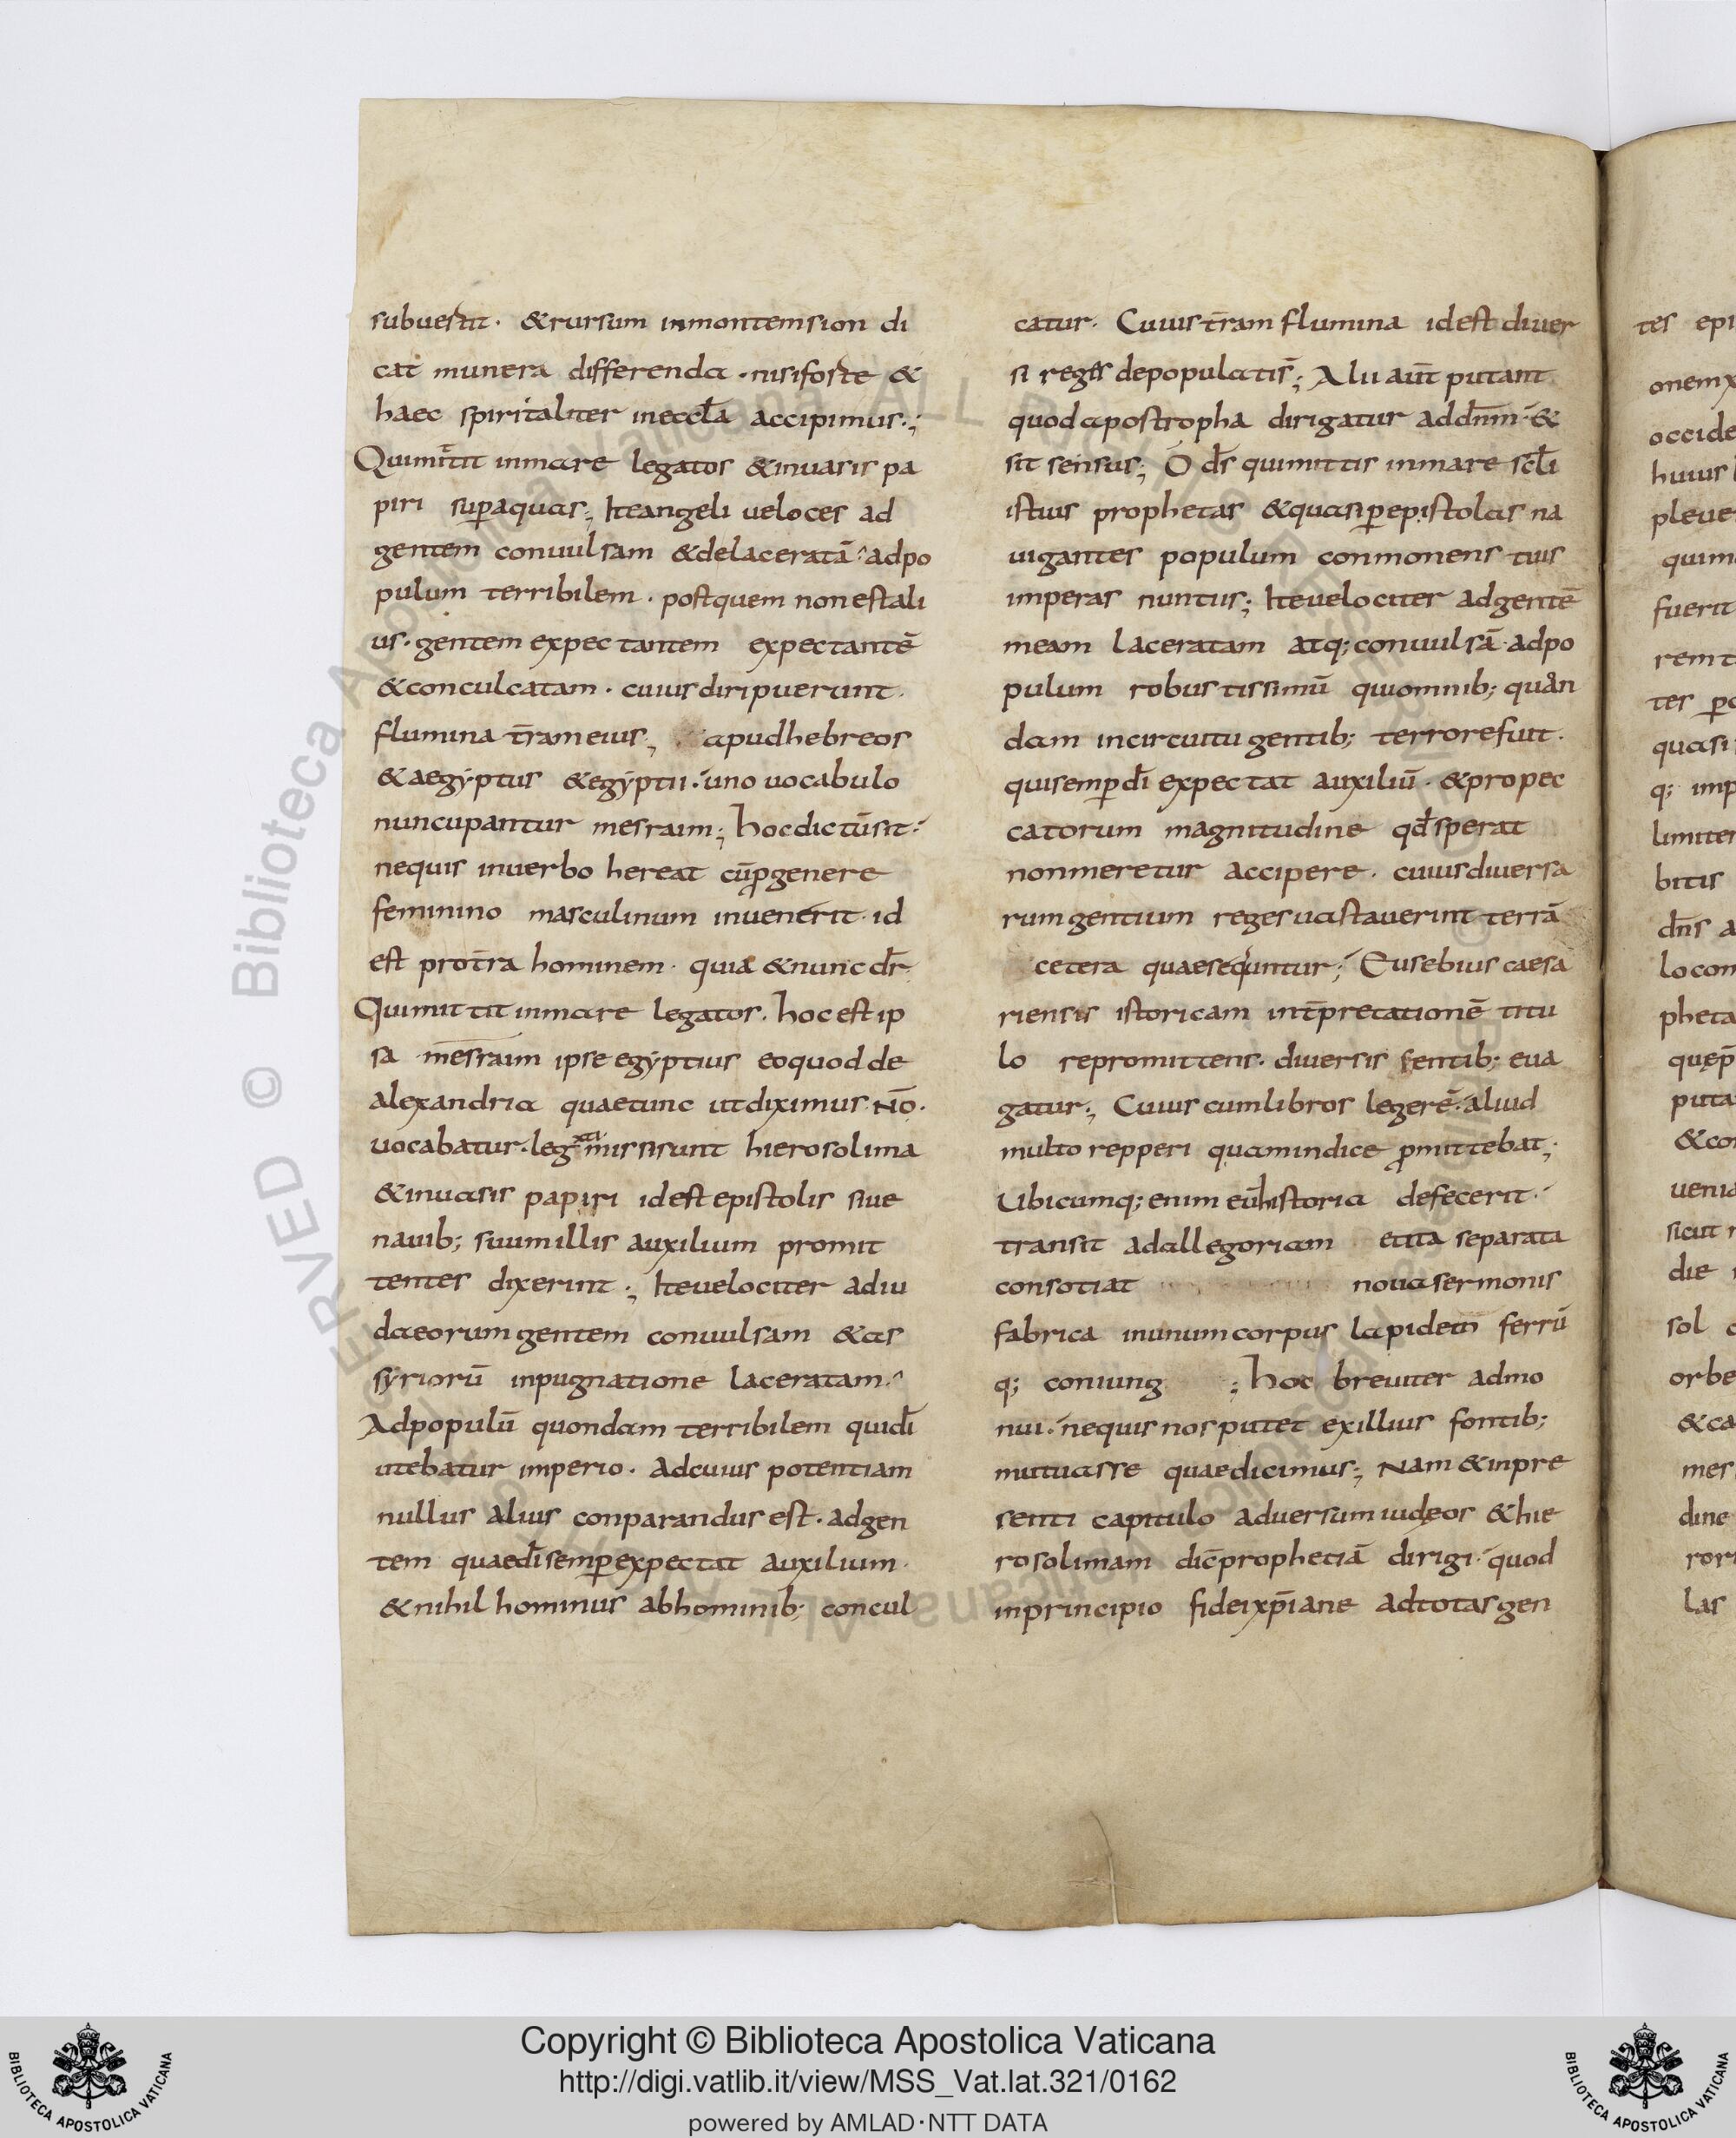 subuertit. &rursum inmontemsion di
cat munera differenda. nisiforte &
haec spiritaliter ineccl̄a accipimus.;
Quimittit inmare legatos &inuasis pa
piri sup̱aquas; Iteangeli ueloces ad
gentem conuulsam &delaceratā. adpo
pulum terribilem. postquem nonestali
us. gentem expectantem expectantē
&conculcatam. cuius diripuerunt.
flumina t̄rameius; apudhebreos
&aegyptus &egyptii. uno uocabulo
nuncupantur mesraim; hocdictūsit.
nequis inuerbo hereat cūp̱genere
feminino masculinum inuenerit. id
est prot̄ra hominem. quia &nunc dr̄.
Quimittit inmare legatos. hocestip
sa mesraim ipse egyptius eoquod de
alexandria quaetunc utdiximus. Nō.
uocabatur. legati missisunt hierosolima
&inuasis papiri idestepistolis siue
nauib; suumillis auxilium promit
tenter dixerint; Iteuelociter adiu
daeorumgentem conuulsam &as
syriorū inpugnatione laceratam.
Adpopulū quondam terribilem quidī
utebatur imperio. Adcuius potentiam
nullus alius conparandus est. adgen
tem quaedīsemp̱expectat auxilium.
&nihil hominus abhominib; concul
catur. Cuius t̄ram flumina idest diuer
si reges depopulatis̄; Alii aūt putant
quodapostropha dirigatur addn̄m. &
sit sensus; O ds̄ quimittis inmare scl̄i
istius prophetas &quasip̱epistolas na
uigantes populum conmonens tuis
imperas nuntus; Iteuelociter adgentē
meam laceratam atq; conuulsā. adpo
pulum robustissimū quiomnib; quan
dam incircuitu gentib; terrorefuit.
quisemp̱dī expectat auxiliū. &propec
catorum magnitudine qd̄sperat
nonmeretur accipere. cuiusdiuersa
rumgentium reges uastauerint terrā
cetera quaesequntur; Eusebius caesa
riensis istoricam int̄pretationē titu
lo repromittens. diuersis sentib; eua
gatur; Cuius cumlibros legerē. aliud
multo repperi quamindice p̱mittebat;
Ubicumq; enim eūhistoria defecerit.
transit adallegoriam etita separata
consotiat nouasermonis
fabrica inunumcorpus lapidem ferrū
q; coniung ; hoc breuiter admo
nui. nequis nos putet exillius fontib;
mutuasse quaedicimus; Nam &inpre
senti capitulo aduersum iudęos &hie
rosolimam dic̄prophetiā dirigi. quod
inprincipio fideixp̄iane adtotas gen
tes epi
occide
fuerit
sicut
sol
las
Copyright © Biblioteca Apostolica Vaticana
http://digi.vatlib.it/view/MSS_Vat.lat.321/0162
powered by AMLAD·NTT DATA
BIBLIOTECA APOSTOLICA VATICANA
BIBLIOTECA APOSTOLICA VATICANA